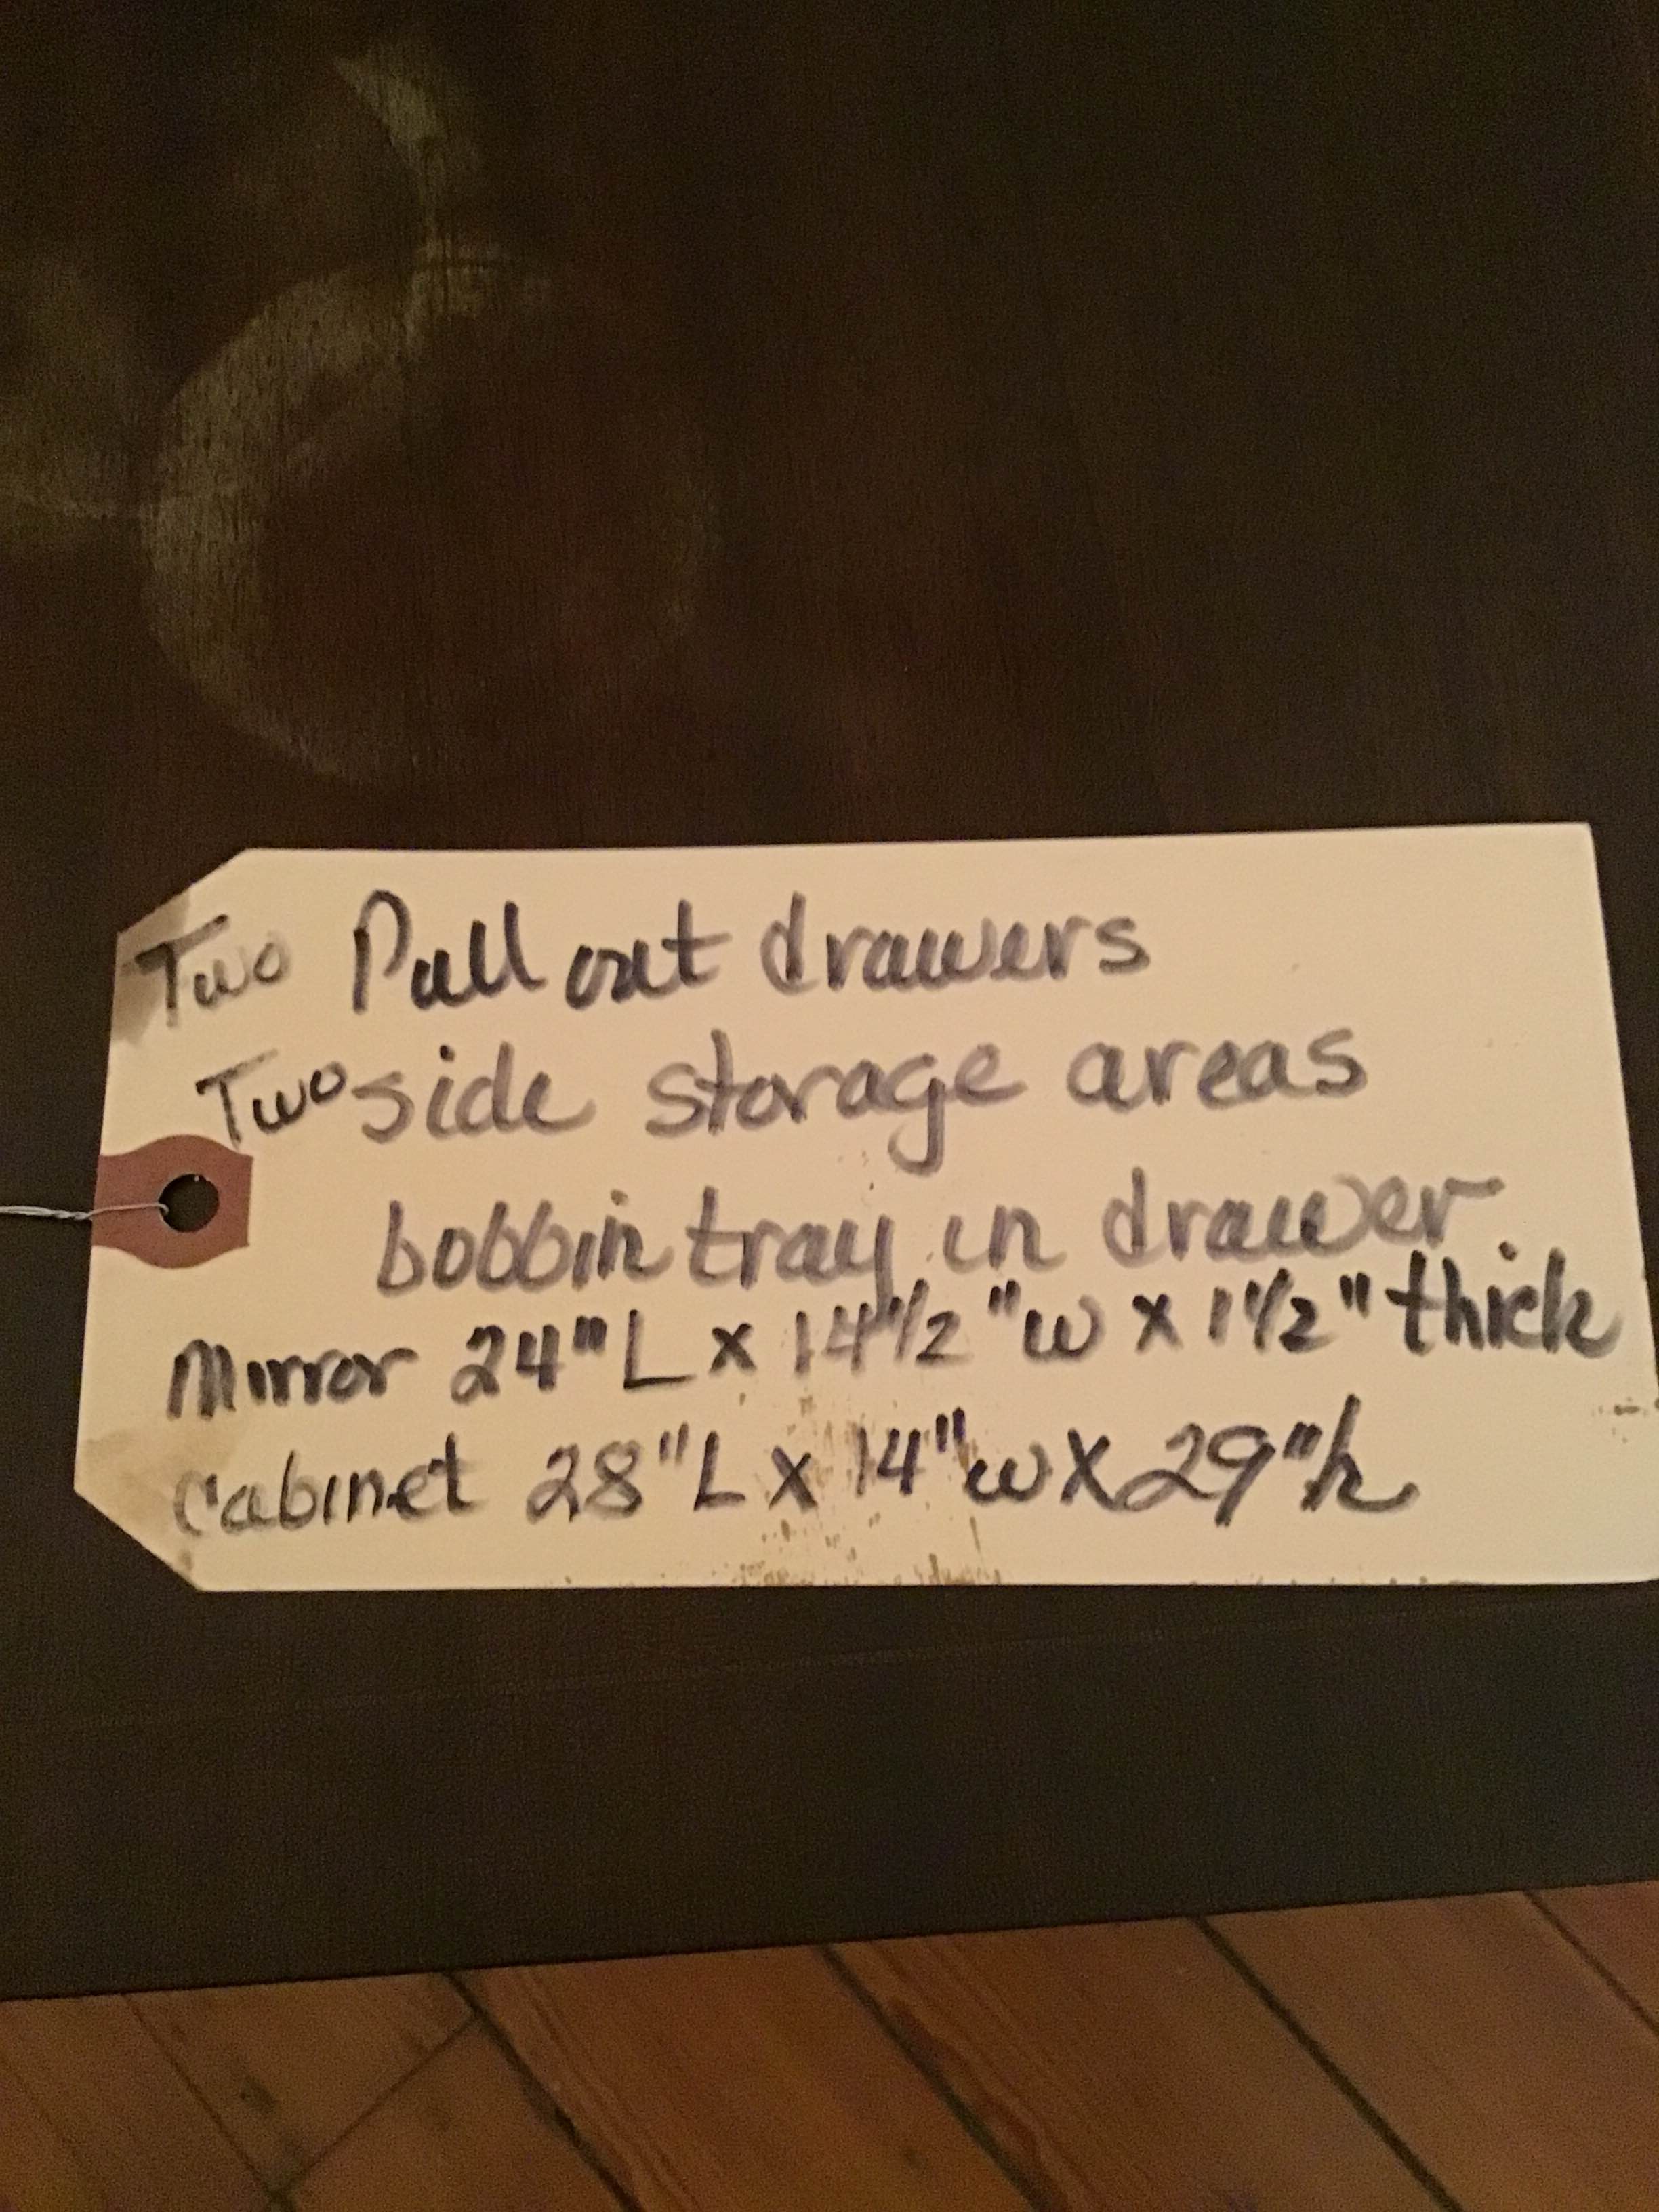 Two Pull out drawers
Two side storage areas
bobbin tray in drawer
Mirror 24"L x 14 1/2"w x 1 1/2" thick
Cabinet 28"L x 14"w x 29"h